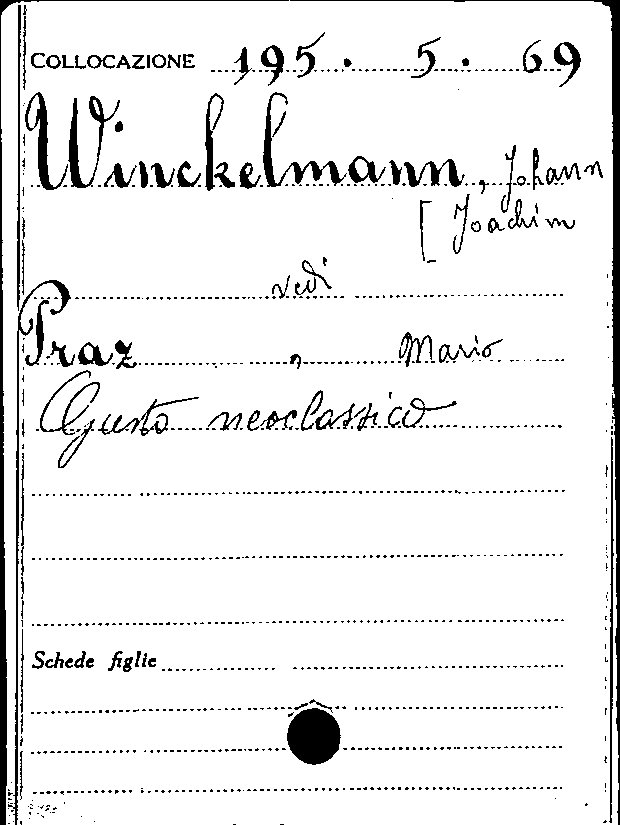 COLLOCAZIONE 195. 5. 69
Winckelmann, Johann
[Joachim
vedi
Praz, Mario
Gusto neoclassico
Schede figlie